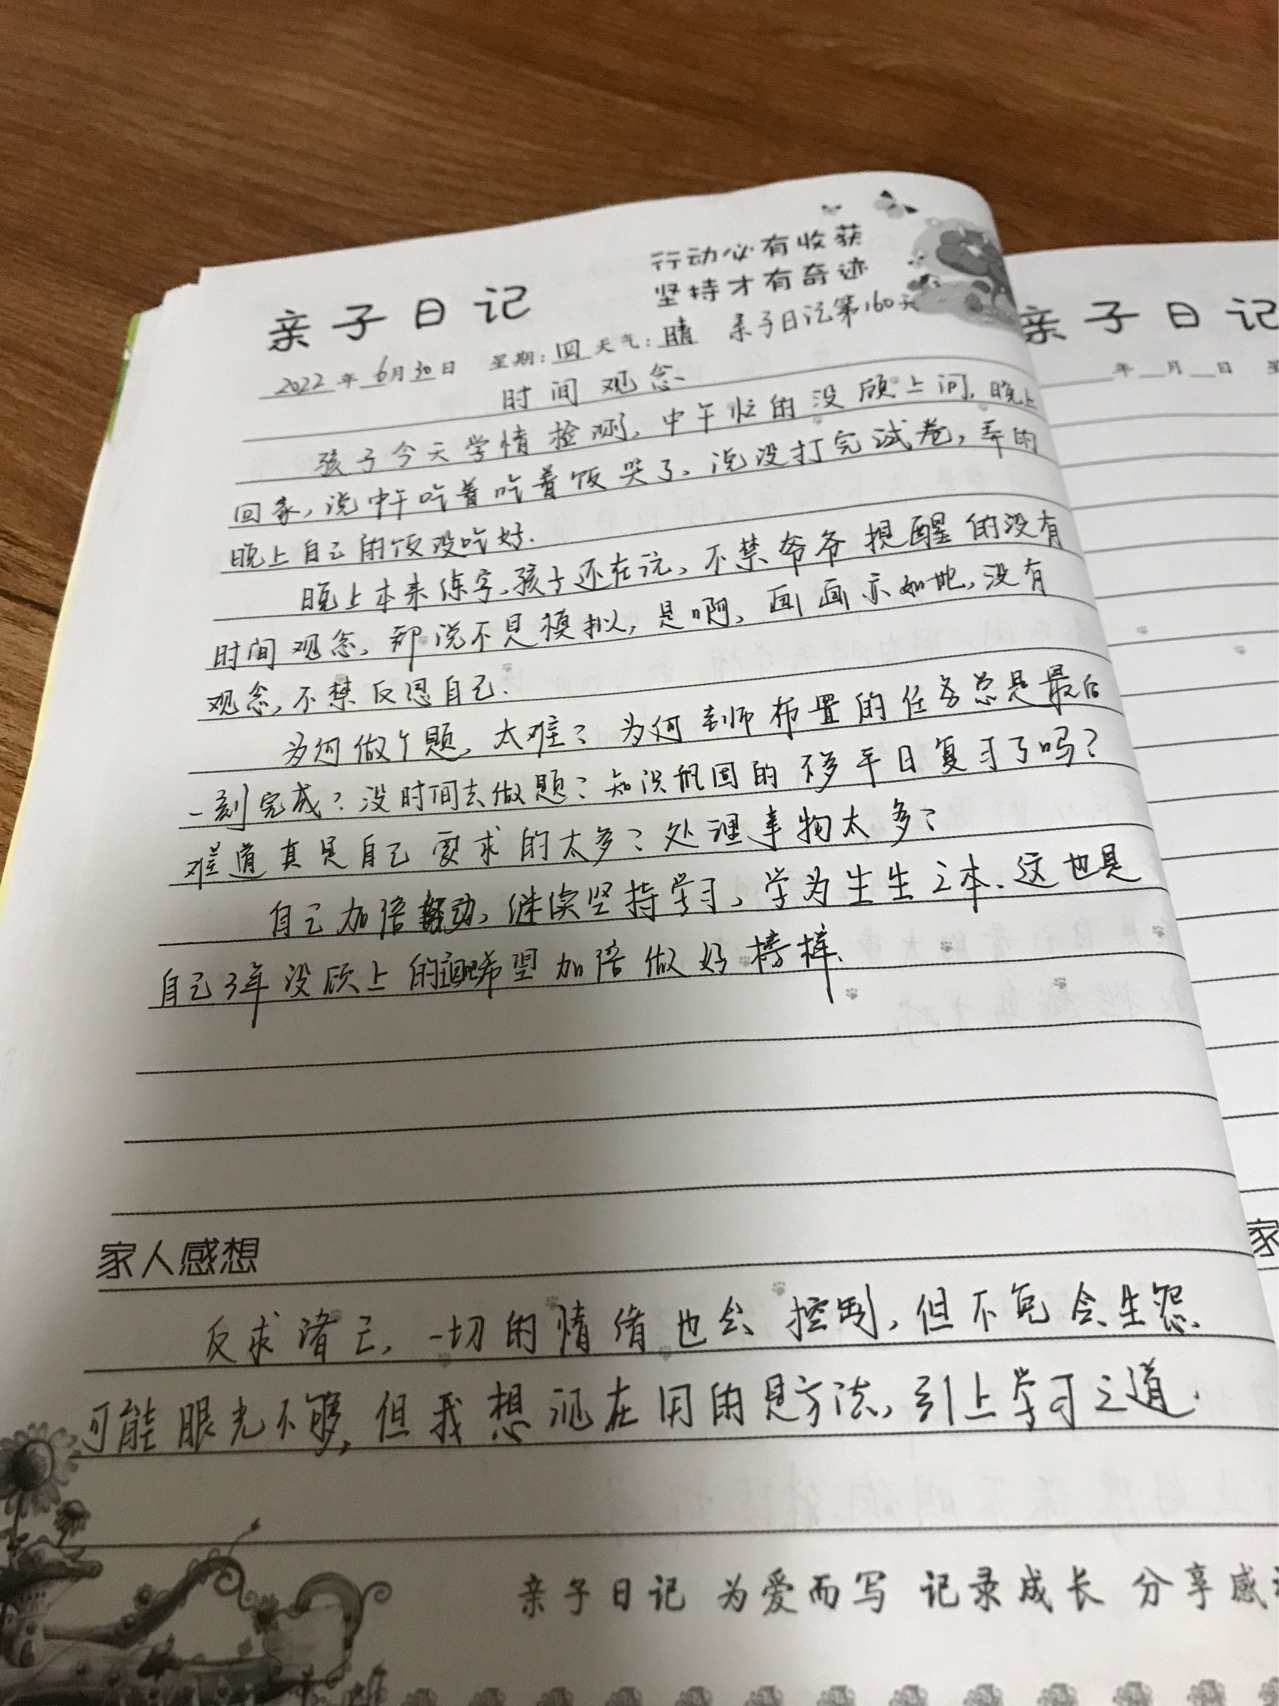 行动必有收获
坚持才有奇迹
亲子日记
亲子日记第160天
2022年6月30日 星期:四 天气:晴
时间观念
孩子今天学情检测,中午忙的没顾上问,晚上
回家,说中午吃着吃着饭哭了、说没打完试卷,弄的
晚上自己的饭没吃好.
晚上本来练字,孩子还在玩、不禁爷爷提醒的没有
时间观念,都说不是模拟,是啊、画画亦如此,没有
观念,不禁反思自己.
为何做个题,太难?为何老师布置的任务总是最后
一刻完成?没时间去做题?知识巩固的 平日复习了吗?
难道真是自己要求的太多?处理事物太多?
自己加倍 ,继续坚持学习,学为生生之本、这也是
自己3年没顾上的 希望加倍做好榜样.
家人感想
反求诸己,一切的情绪也会控制,但不免会生怨、
可能眼光不够,但我想现在用的是方法,引上学习之道.
亲子日记 为爱而写 记录成长 分享感
亲子日记
年 月 日
家